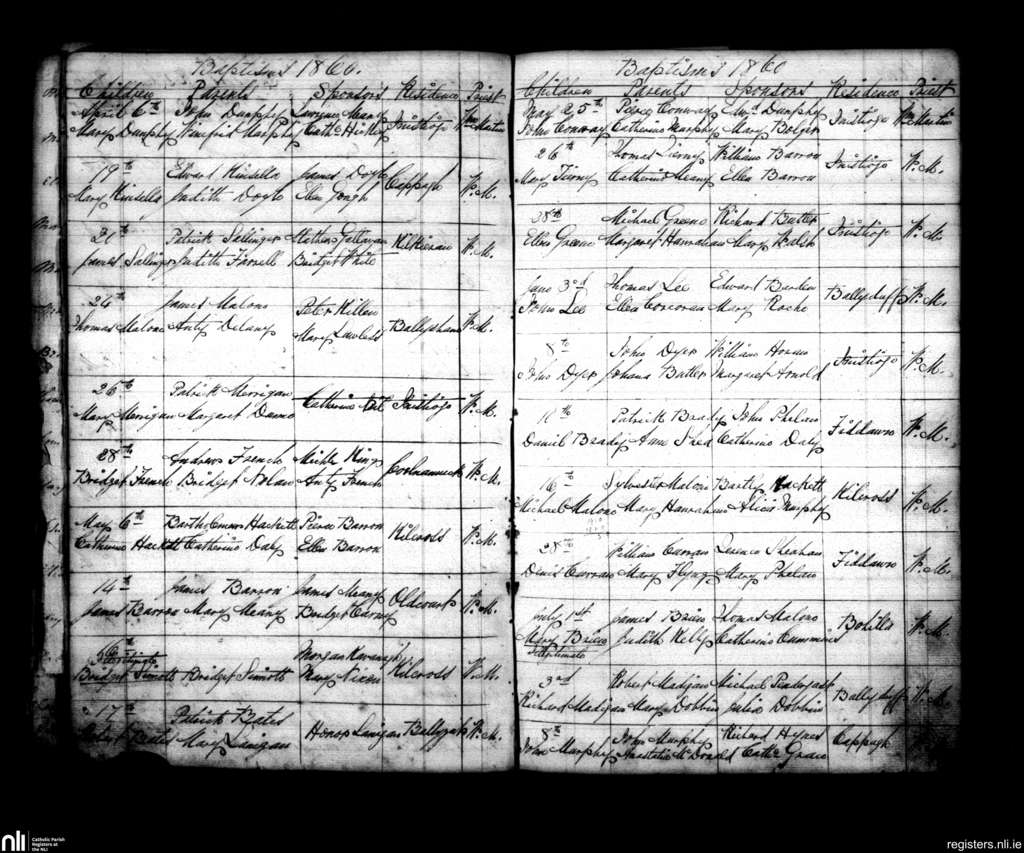 Baptisms 1860.
Children Parents Sponsors Residence Priest
April 6th John Dunphy Laurence Meany
Mary Dunphy Winifrid Murphy Cathe Hickey Inistioge Wm Martin
19th Edward Kinsella James Doyle
Mary Kinsella Judith Doyle Ellen Gough Cappagh W. M.
21th Patrick Sallinger Mathew Gallavan
James Sallinger Judith Farrell Bridget White Kilkieran W. M.
24th James Malone Peter Killen
Thomas Malone Anty Delany Mary Lawless W. M.
26th Patrick Merrigan
Mary Merrigan Margaret Catherine Inistioge W. M.
28th Andrew French Michl King
Bridget French Bridget Nolan Anty French W. M.
May 6th Bartholomew Hackett Pierce Barron
Catherine Hackett Catherine Daly Ellen Barron Kilcross W. M.
14th James Barron James Meany
James Barron Mary Meany Bridget Carny Oldcourt W. M.
16th Morgan Kavanagh
Illegitimate
Bridget Sinnott Bridget Sinnott Mary Nixon Kilcross W. M.
17th Patrick Bates
Bates Mary Lanigan Honor Lanigan W. M.
Baptisms 1860
Children Parents Sponsors Residence Priest
May 25th Pierce Conway Dunphy
John Conway Catherine Murphy Mary Bolger Inistioge Wm Martin
26th Thomas Tierny William Barron
Mary Tierny Catherine Meany Ellen Barron Inistioge W. M.
28th Michael Greene Richard Butler
Ellen Greene Margaret Hanrahan Mary Walsh Inistioge W. M.
June 3rd Thomas Lee Edward Barden
John Lee Ellen Corcoran Mary Roche Ballyduff W. M.
8th John Dyer William Horan
John Dyer Johana Butler Margaret Arnold Inistioge W. M.
11th Patrick Brady John Phelan
Daniel Brady Anne Shea Catherine Daly Fiddawn W. M.
16th Sylvester Malone Bartly Hackett
Michael Malone Mary Hanrahan Alice Murphy Kilcross W. M.
28th William Curran Terence Sheahan
Denis Curran Mary Flyng Mary Phelan Fiddawn W. M.
July 1st James Brien Thomas Malone
Mary Brien Judith Kelly Catherine Cummins Bohilla W. M.
Illegitimate
3rd Robert Madigan Michael Pendergast
Richard Madigan Mary Dobbin Julia Dobbin Ballyduff W. M.
8th John Murphy Richard Hynes
John Murphy Anastatia McDonald Cathe Grace Cappagh
nli Catholic Parish
Registers at
the NLI
registers.nli.ie